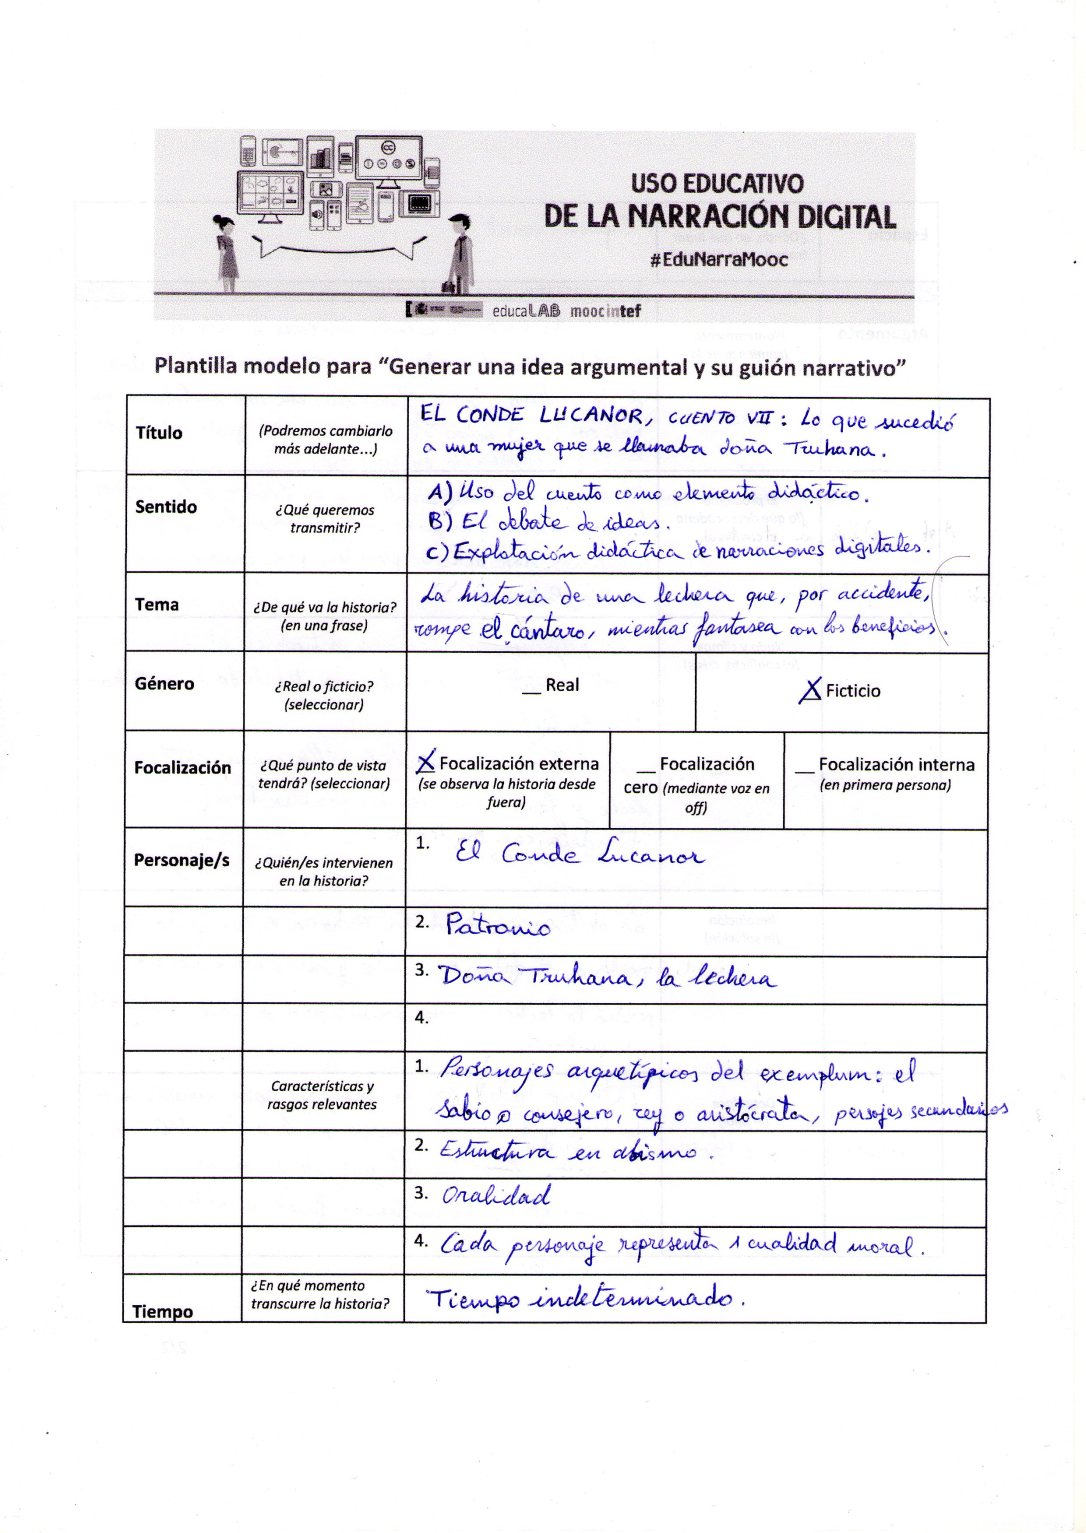 USO EDUCATIVO
DE LA NARRACIÓN DIGITAL
#EduNarraMooc
educaLAB moocintef
Plantilla modelo para “Generar una idea argumental y su guión narrativo”
Título
(Podremos cambiarlo
más adelante...)
EL CONDE LUCANOR, CUENTO VII: Lo que sucedió
a una mujer que se llamaba doña Truhana.
Sentido
¿Qué queremos
transmitir?
A) Uso del cuento como elemento didáctico.
B) El debate de ideas.
C) Explotación didáctica de narraciones digitales.
Tema
¿De qué va la historia?
(en una frase)
La historia de una lechera que, por accidente,
rompe el cántaro, mientras fantasea con los beneficios.
Género
¿Real o ficticio?
(seleccionar)
__ Real
X Ficticio
Focalización
¿Qué punto de vista
tendrá? (seleccionar)
X Focalización externa
(se observa la historia desde
fuera)
__ Focalización
cero (mediante voz en
off)
__ Focalización interna
(en primera persona)
Personaje/s
¿Quién/es intervienen
en la historia?
1. El Conde Lucanor
2. Patronio
3. Doña Truhana, la lechera
4.
Características y
rasgos relevantes
1. Personajes arquetípicos del exemplum: el
sabio o consejero, rey o aristócrata, persojes secundarios
2. Estructura en abismo.
3. Oralidad
4. Cada personaje representa 1 cualidad moral.
Tiempo
¿En qué momento
transcurre la historia?
Tiempo indeterminado.